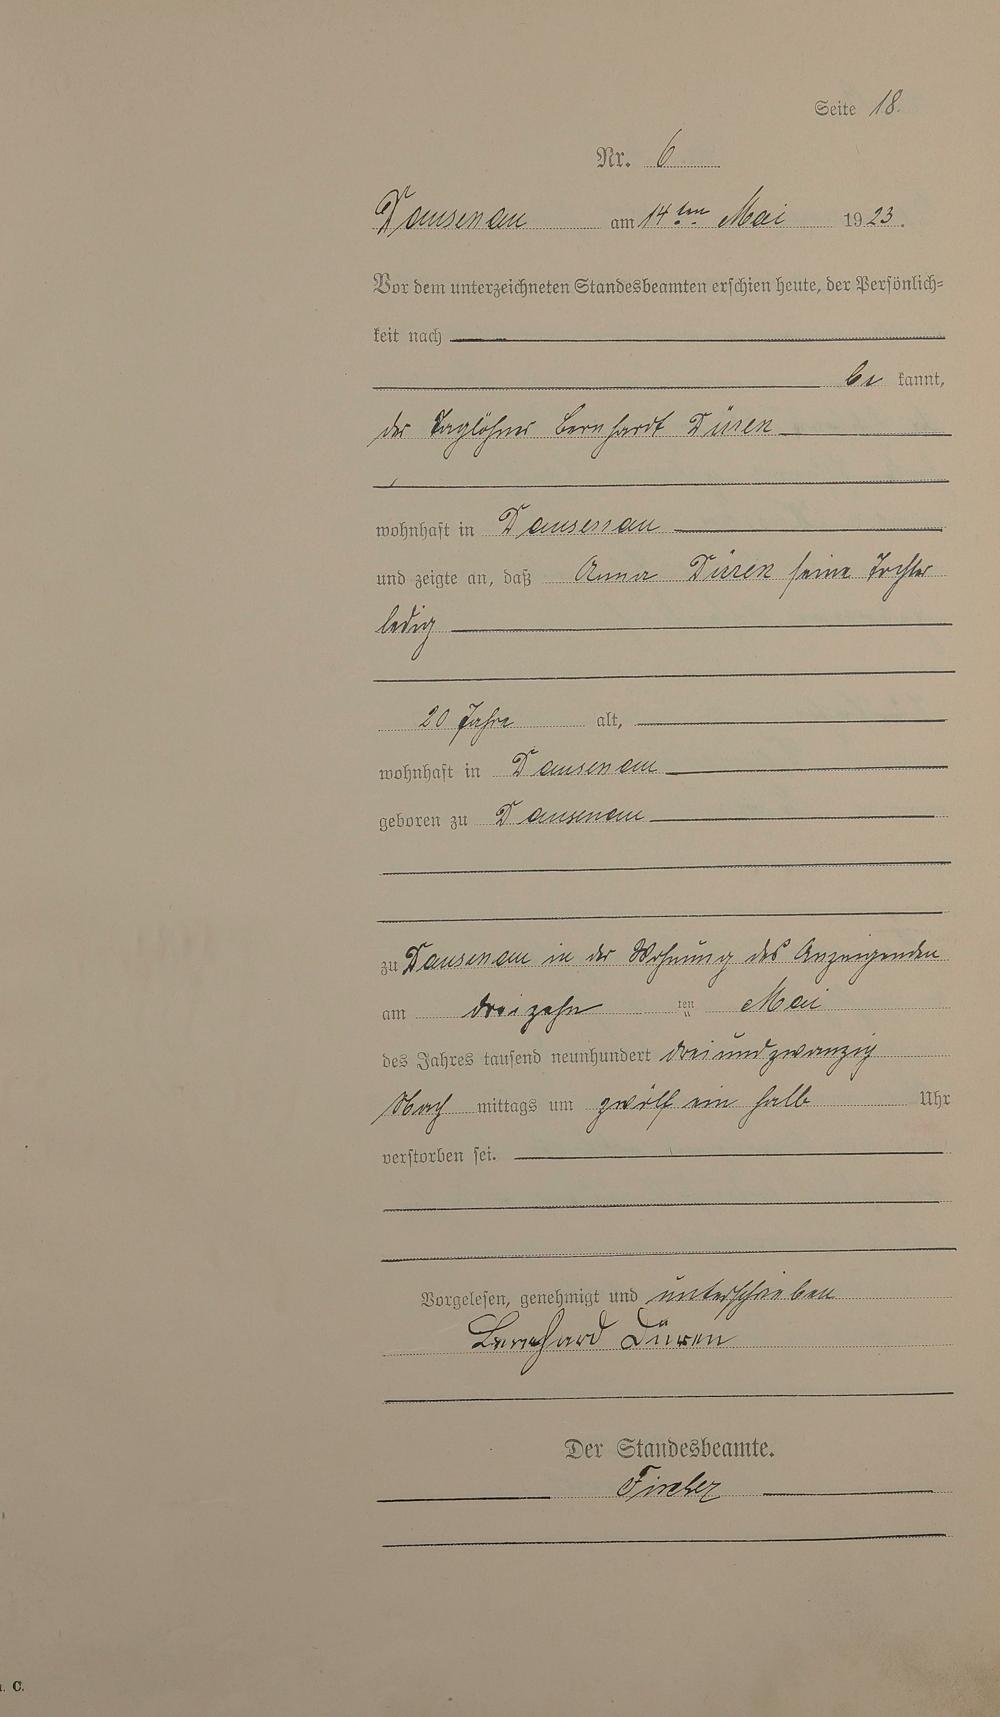 Seite 18.
Nr. 6
Dausenau am 14ten Mai 1923.
Vor dem unterzeichneten Standesbeamten erschien heute, der Persönlich=
keit nach
be kannt,
der Taglöhner Bernhardt Düren
wohnhaft in Dausenau
und zeigte an, daß Anna Düren seine Tochter
ledig
20 Jahre alt,
wohnhaft in Dausenau
geboren zu Dausenau
zu Dausenau in der Wohnung des Anzeigenden
am dreizehn ten Mai
des Jahres tausend neunhundert dreiundzwanzig
Nach mittags um zwölf ein halb Uhr
verstorben sei.
Vorgelesen, genehmigt und unterschrieben
Bernhard Düren
Der Standesbeamte.
C.